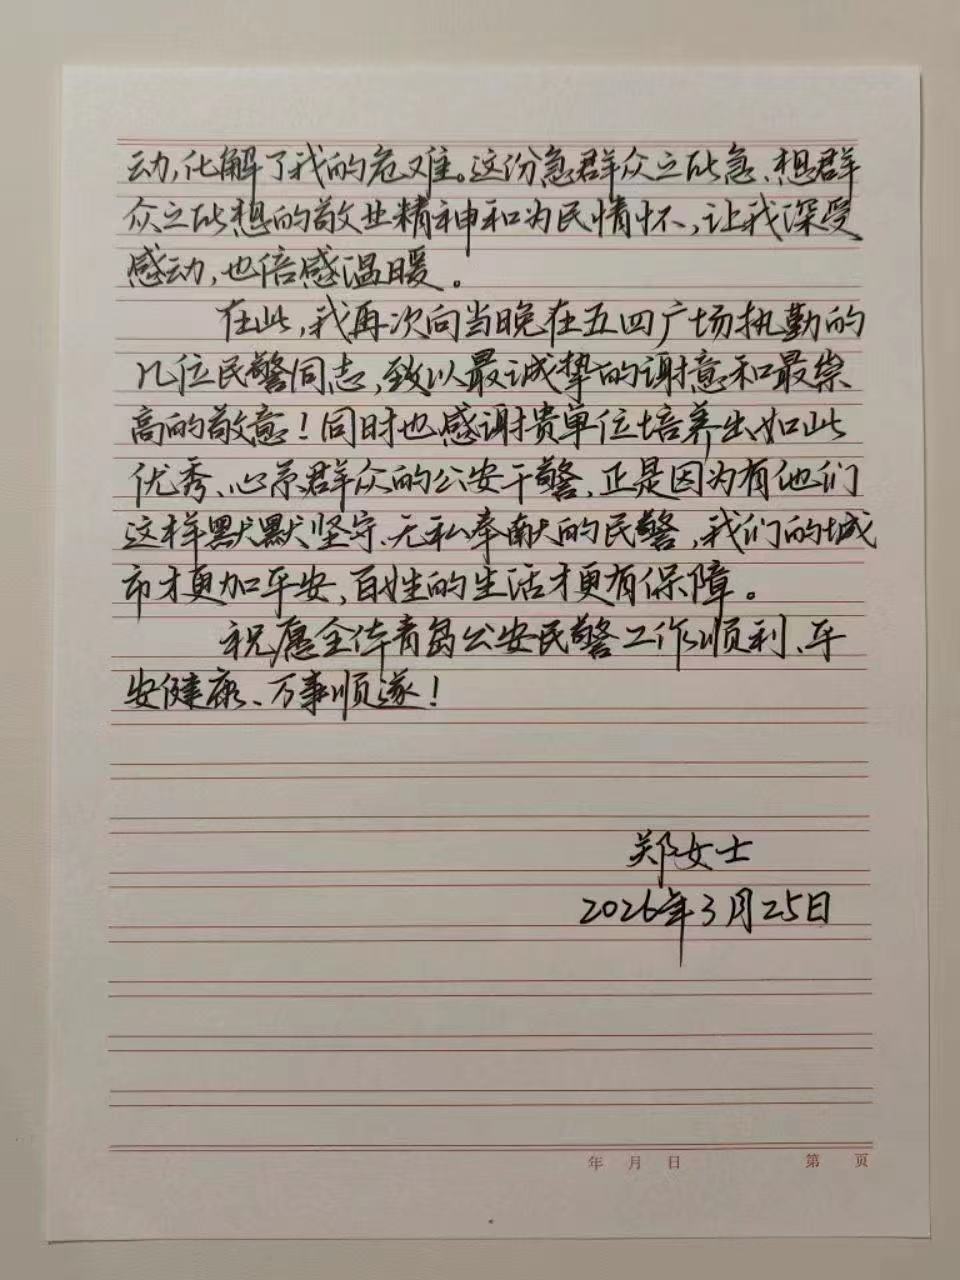 动,化解了我的危难。这份急群众之所急、想群
众之所想的敬业精神和为民情怀,让我深受
感动,也倍感温暖。
在此,我再次向当晚在五四广场执勤的
几位民警同志,致以最诚挚的谢意和最崇
高的敬意!同时也感谢贵单位培养出如此
优秀、心系群众的公安干警,正是因为有他们
这样默默坚守、无私奉献的民警,我们的城
市才更加平安,百姓的生活才更有保障。
祝愿全体青岛公安民警工作顺利、平
安健康、万事顺遂!
郑女士
2026年3月25日
年 月 日 第 页